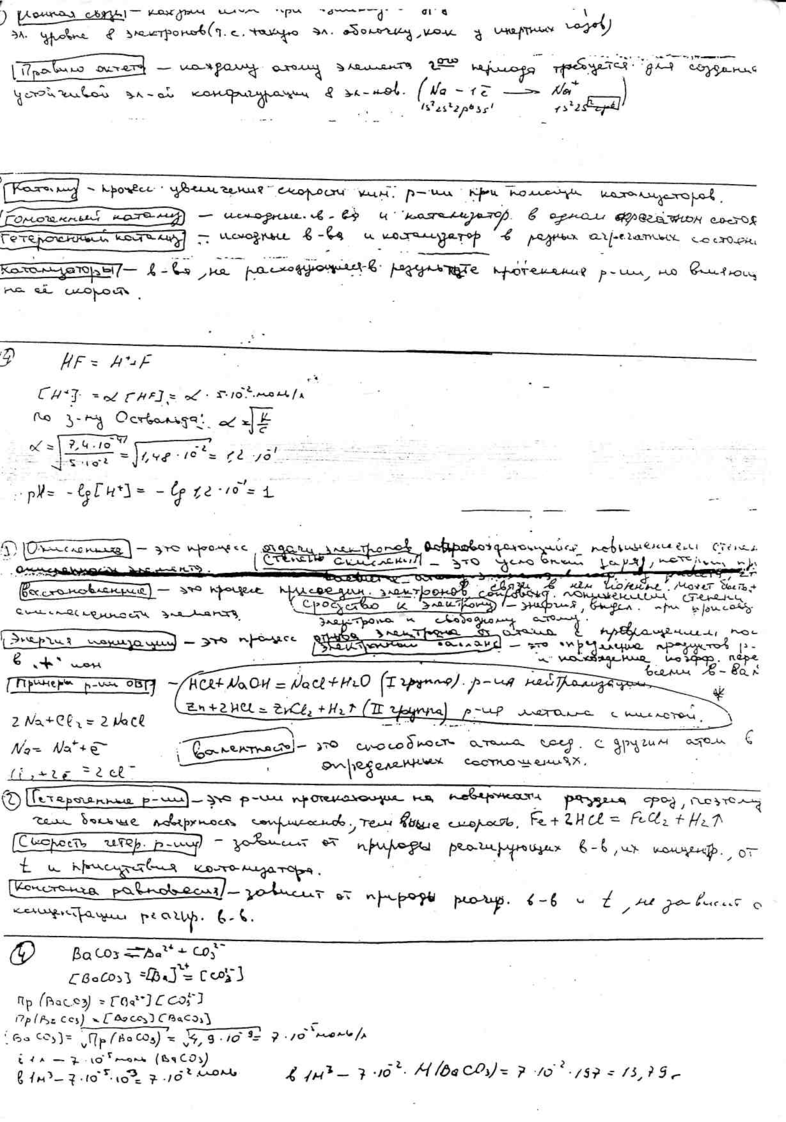 Ионная связь - каждый атом при
эл. уровне 8 электронов (т.е. такую эл. оболочку, как у инертных газов)
Правило октета - каждому атому элемента 2ого периода требуется для создания
устойчивой эл-ой конфигурации 8 эл-нов. (Na - 1ē → Na⁺)
1s²2s²2p⁶3s¹ 1s²2s²2p⁶
Катализ - процесс увеличения скорости хим. р-ии при помощи катализаторов.
Гомогенный катализ - исходные в-ва и катализатор в одном агрегатном состоя
Гетерогенный катализ - исходные в-ва и катализатор в разных агрегатных состоян
Катализаторы - в-ва, не расходующиеся в результате протекания р-ии, но влияющ
на её скорость.
HF = H⁺+F
[H⁺] = α [HF] = α · 5·10⁻² моль/л
по з-ну Оствальда: α = √K/C
α = √7,4·10⁻⁴/5·10⁻² = √1,48·10⁻² = 1,2·10⁻¹
pH = -lg[H⁺] = -lg 1,2·10⁻¹ = 1
① Окисление - это процесс отдачи электронов сопровождающийся повышением степен
Степень окисления - это условный заряд,
Восстановление - это процесс присоедин. электронов сопровожд. понижением степени
окисленности элемента. Сродство к электрону - энергия, выдел. при присоед
электрона к свободному атому.
Энергия ионизации - это процесс отрыва электрона от атома с превращением пос
в "+" ион Электронный баланс - это определение продуктов р-
и нахождение коэфф. пере
всеми в-вами
Примеры р-ии ОВР - HCl+NaOH = NaCl+H2O (I группа). р-ия нейтрализации
Zn+2HCl = ZnCl2+H2↑ (II группа) р-ия металла с кислотой. *
2Na+Cl2 = 2NaCl
Na = Na⁺+ē
Cl2+2ē = 2Cl⁻
Валентность - это способность атома соед. с другим атом в
определенных соотношениях.
② Гетерогенные р-ии - это р-ии протекающие на поверхности раздела фаз, поэтому
чем больше поверхность соприкоснов., тем выше скорость. Fe+2HCl = FeCl2+H2↑
Скорость гетер. р-ии - зависит от природы реагирующих в-в, их концентр., от
t и присутствия катализатора.
Константа равновесия - зависит от природы реагир. в-в и t, не зависит о
концентрации реагир. в-в.
④ BaCO3 ⇌ Ba²⁺ + CO3²⁻
[BaCO3] = [Ba]²⁺ = [CO3²⁻]
Пр(BaCO3) = [Ba²⁺][CO3²⁻]
Пр(BaCO3) = [BaCO3][BaCO3]
[BaCO3] = √Пр(BaCO3) = √4,9·10⁻⁹ = 7·10⁻⁵ моль/л
в 1л - 7·10⁻⁵ моль (BaCO3)
в 1м³ - 7·10⁻⁵·10³ = 7·10⁻² моль в 1м³ - 7·10⁻²·M(BaCO3) = 7·10⁻²·197 = 13,79 г